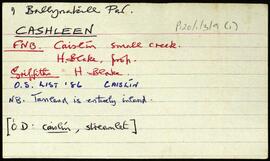 9 Ballynakill Par.
P120/1/3/9 (1)
CASHLEEN
FNB. Caislín small creek.
H. Blake, prop.
Griffiths H Blake
O.S. LIST '86 CAISLÍN
NB. Townland is entirely inland.
[O D: caislín, streamlet]